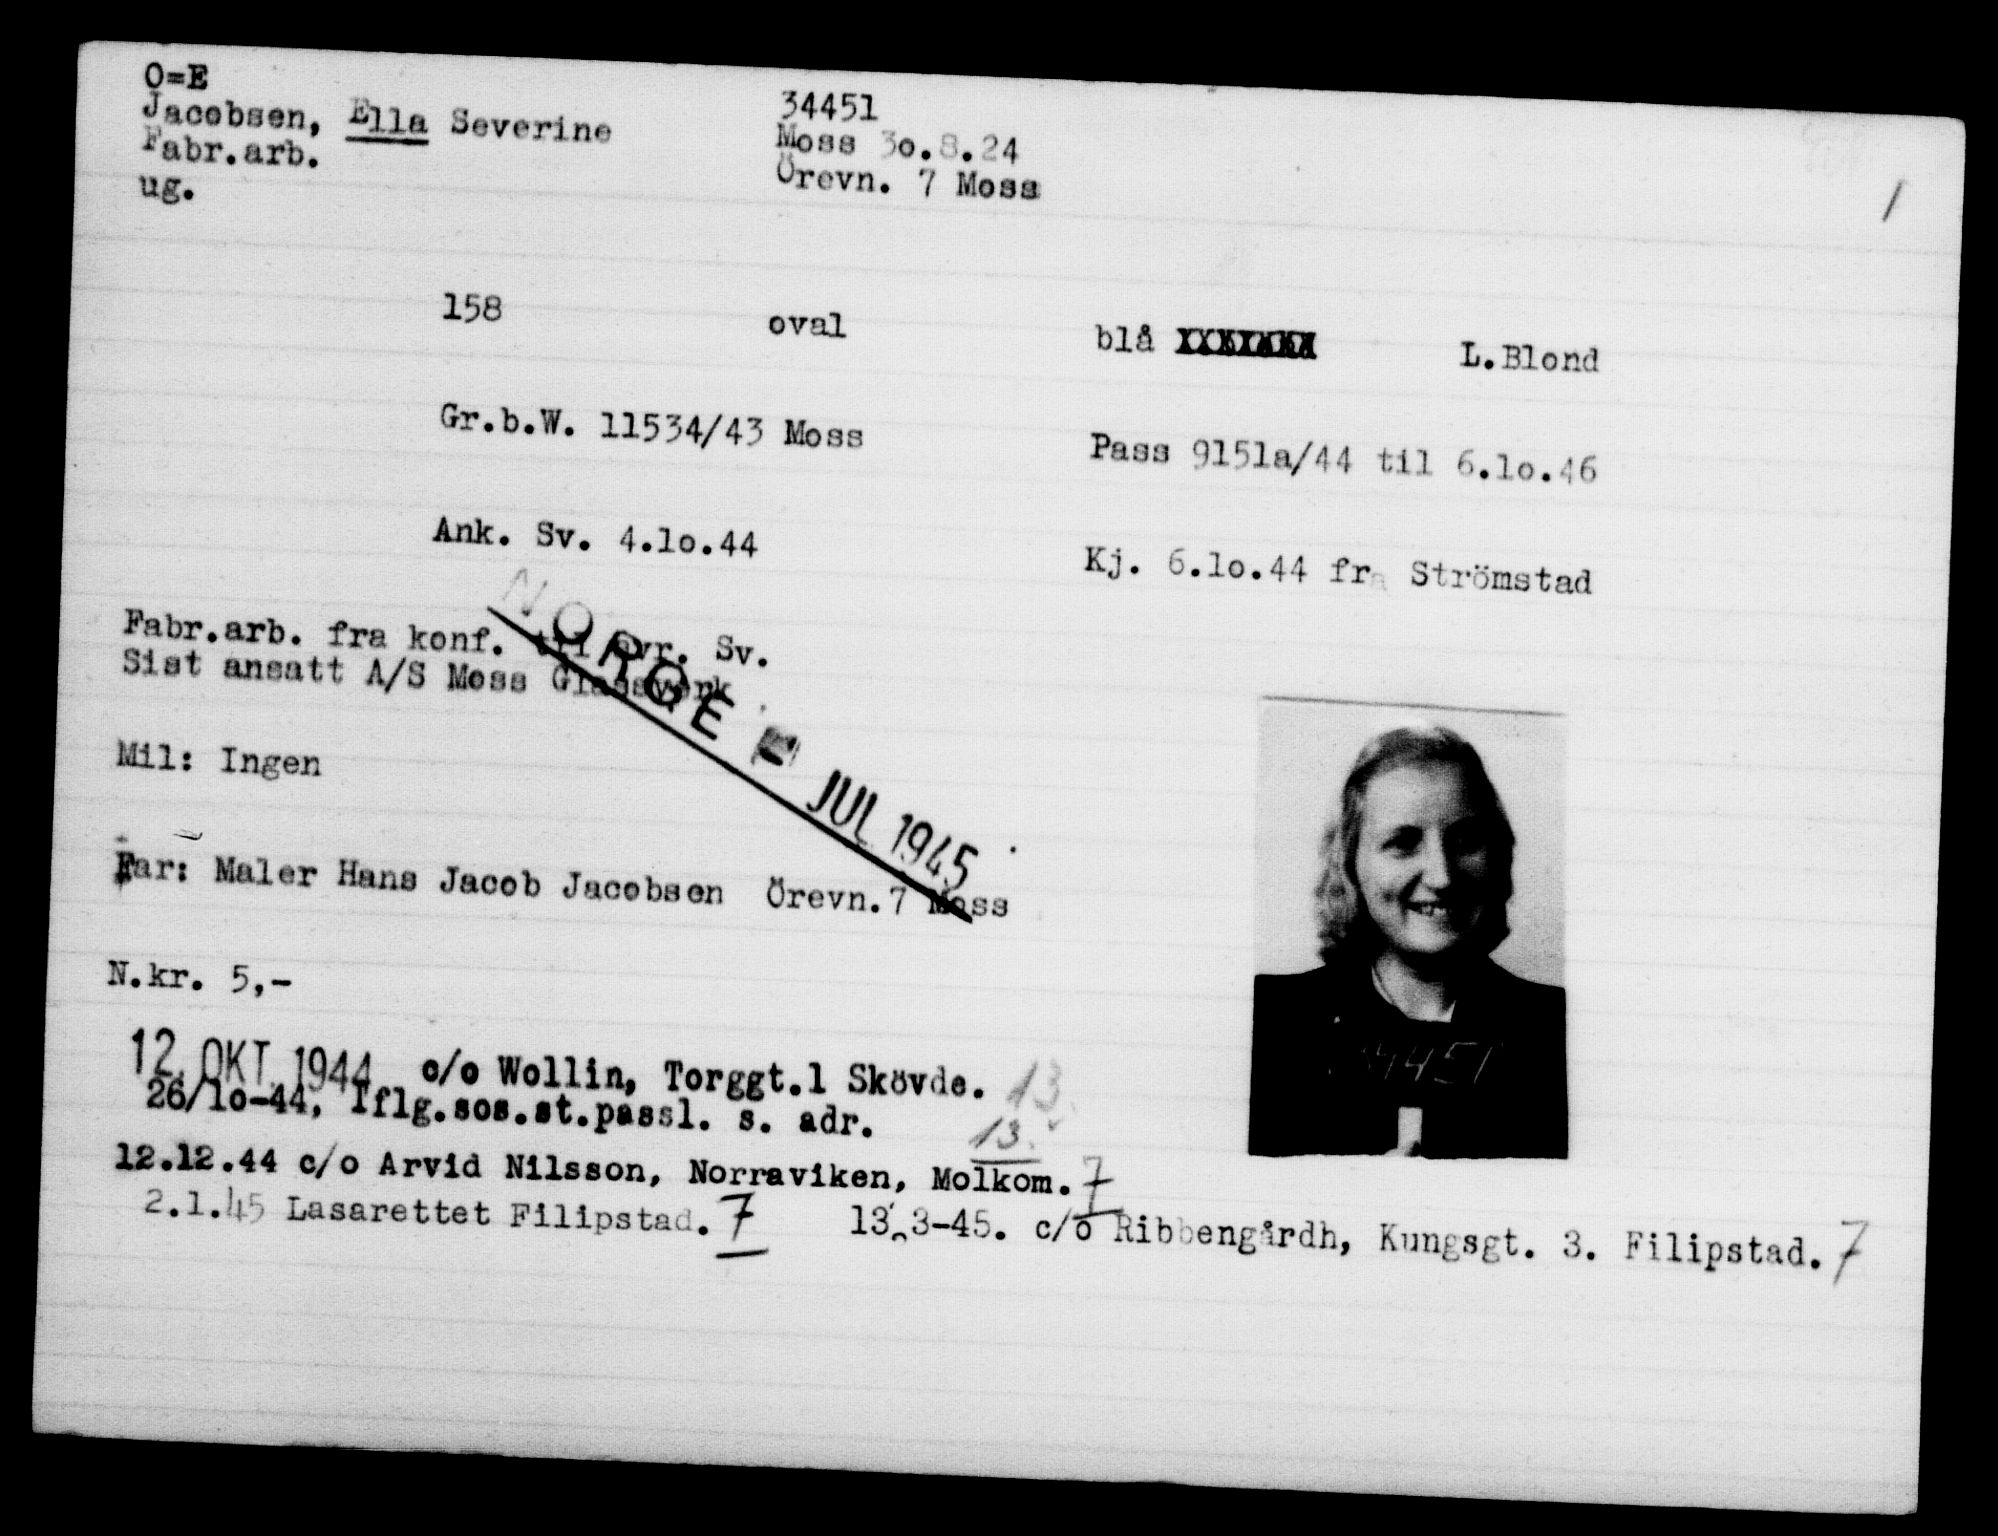 O=E
Jacobsen, Ella Severine
Fabr.arb.
ug.
34451
Moss 3o.8.24
Örevn. 7 Moss
1
158 oval blå L.Blond
Gr.b.W. 11534/43 Moss Pass 9151a/44 til 6.1o.46
Ank. Sv. 4.1o.44 Kj. 6.1o.44 fra Strömstad
Fabr.arb. fra konf. til ovr. Sv.
Sist ansatt A/S Moss Glassverk
NORGE JUL 1945
Mil: Ingen
Far: Maler Hans Jacob Jacobsen Örevn.7 Moss
N.kr. 5,-
4451
12. OKT. 1944 c/o Wollin, Torggt.1 Skövde. 13
26/1o-44, Iflg.sos.st.passl. s. adr. 13.
12.12.44 c/o Arvid Nilsson, Norraviken, Molkom. 7
2.1.45 Lasarettet Filipstad. 7 13.3-45. c/o Ribbengårdh, Kungsgt. 3. Filipstad. 7